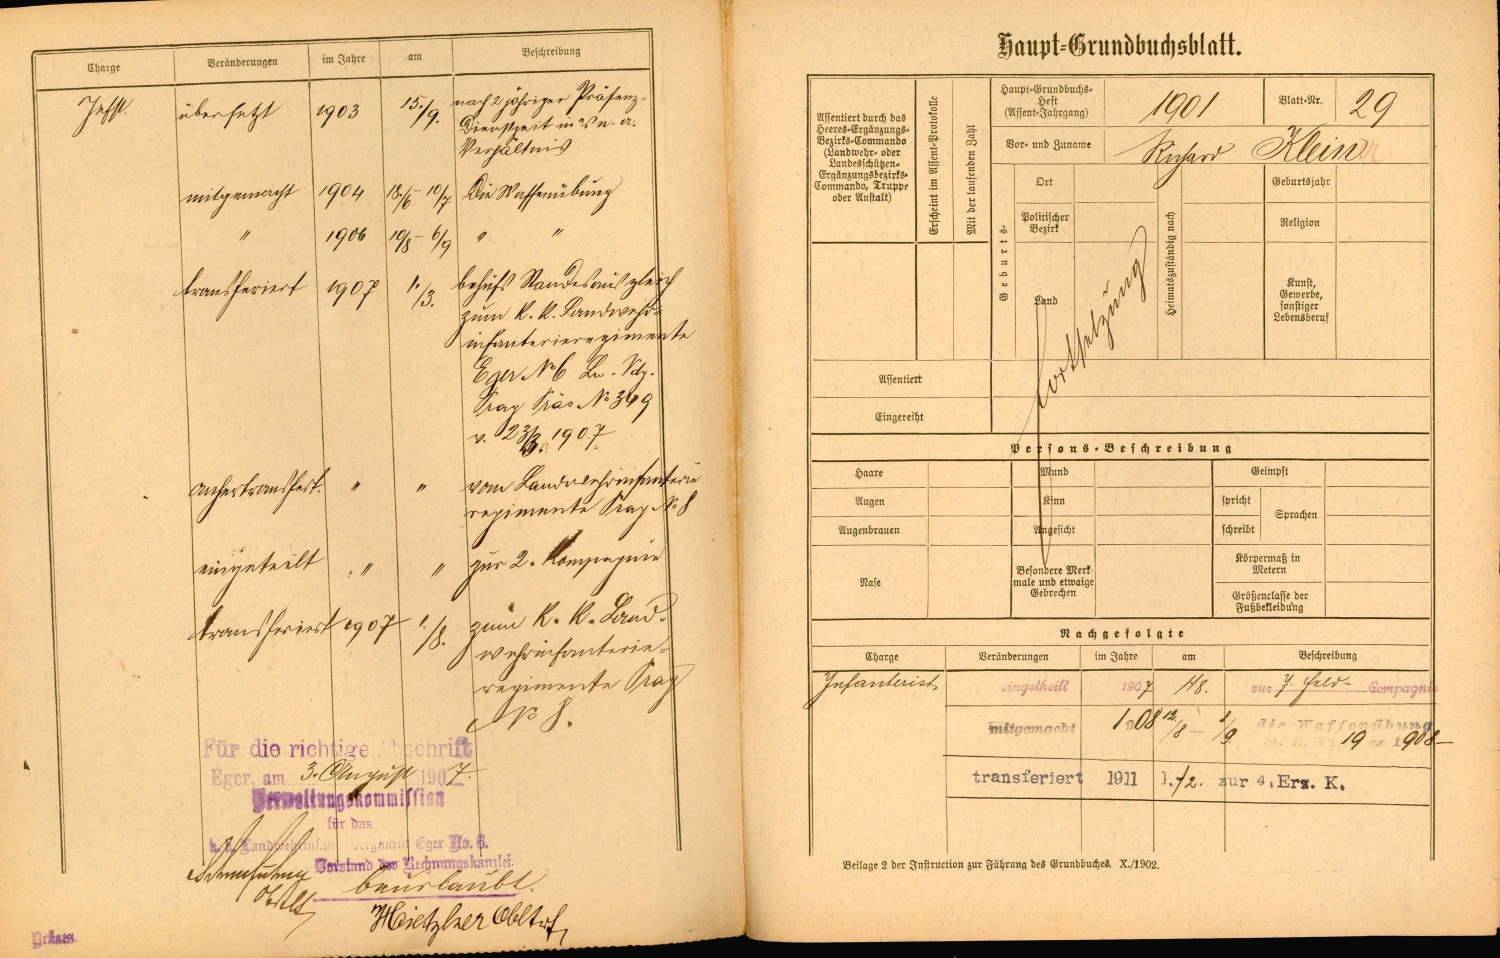 Charge Veränderungen im Jahre am Beschreibung
Infst. übersetzt 1903 15./9. nach 2 jähriger Präsenz-
Dienstzeit in's n. a.
Verhältnis
mitgemacht 1904 13./6 - 10/7 Die Waffenübung
" 1906 10/8 - 6/9 " "
transferiert 1907 1./3. behufs Standesausgleich
zum k. k. Landwehr-
infanterieregimente
Eger No 6 Lw.
Prag Präs No 349
v. 1907
anhertransfert. " " vom Landwehrinfanterie
regimente Prag No 8
eingeteilt " " zur 2. Kompagnie
transferiert 1907 1./8. zum k. k. Land-
wehrinfanterie-
regimente Prag
No 8.
Für die richtige Abschrift
Eger, am 3. August 1907.
Verwaltungskommission
für das
k. k. Landwehrinfanterieregiment Eger No. 6.
Vorstand der Rechnungskanzlei
beurlaubt.
Obstlt
Obltrf
Haupt-Grundbuchsblatt.
Assentiert durch das
Heeres-Ergänzungs-
Bezirks-Commando
(Landwehr- oder
Landesschützen-
Ergänzungsbezirks-
Commando, Truppe
oder Anstalt)
Erscheint im Assent-Protokolle
Mit der laufenden Zahl
Haupt-Grundbuchs-
Heft
(Assent-Jahrgang)
1901
Blatt-Nr. 29
Vor- und Zuname Richard Kleiner
Geburts-
Ort
Politischer
Bezirk
Land
Heimatszuständig nach
Geburtsjahr
Religion
Kunst,
Gewerbe,
sonstiger
Lebensberuf
Fortsetzung
Assentiert
Eingereiht
Persons-Beschreibung
Haare Mund Geimpft
Augen Kinn spricht
Sprachen
Augenbrauen Angesicht schreibt
Nase
Besondere Merk-
male und etwaige
Gebrechen
Körpermaß in
Metern
Größenclasse der
Fußbekleidung
Nachgefolgte
Charge Veränderungen im Jahre am Beschreibung
Infanterist eingetheilt 1907 1/8. zur 7. Feld- Compagnie
mitgemacht 1908 12./8 - 8/9 die Waffenübung
19 ex 1908
transferiert 1911 1./2. zur 4. Erz. K.
Beilage 2 der Instruction zur Führung des Grundbuches. X./1902.